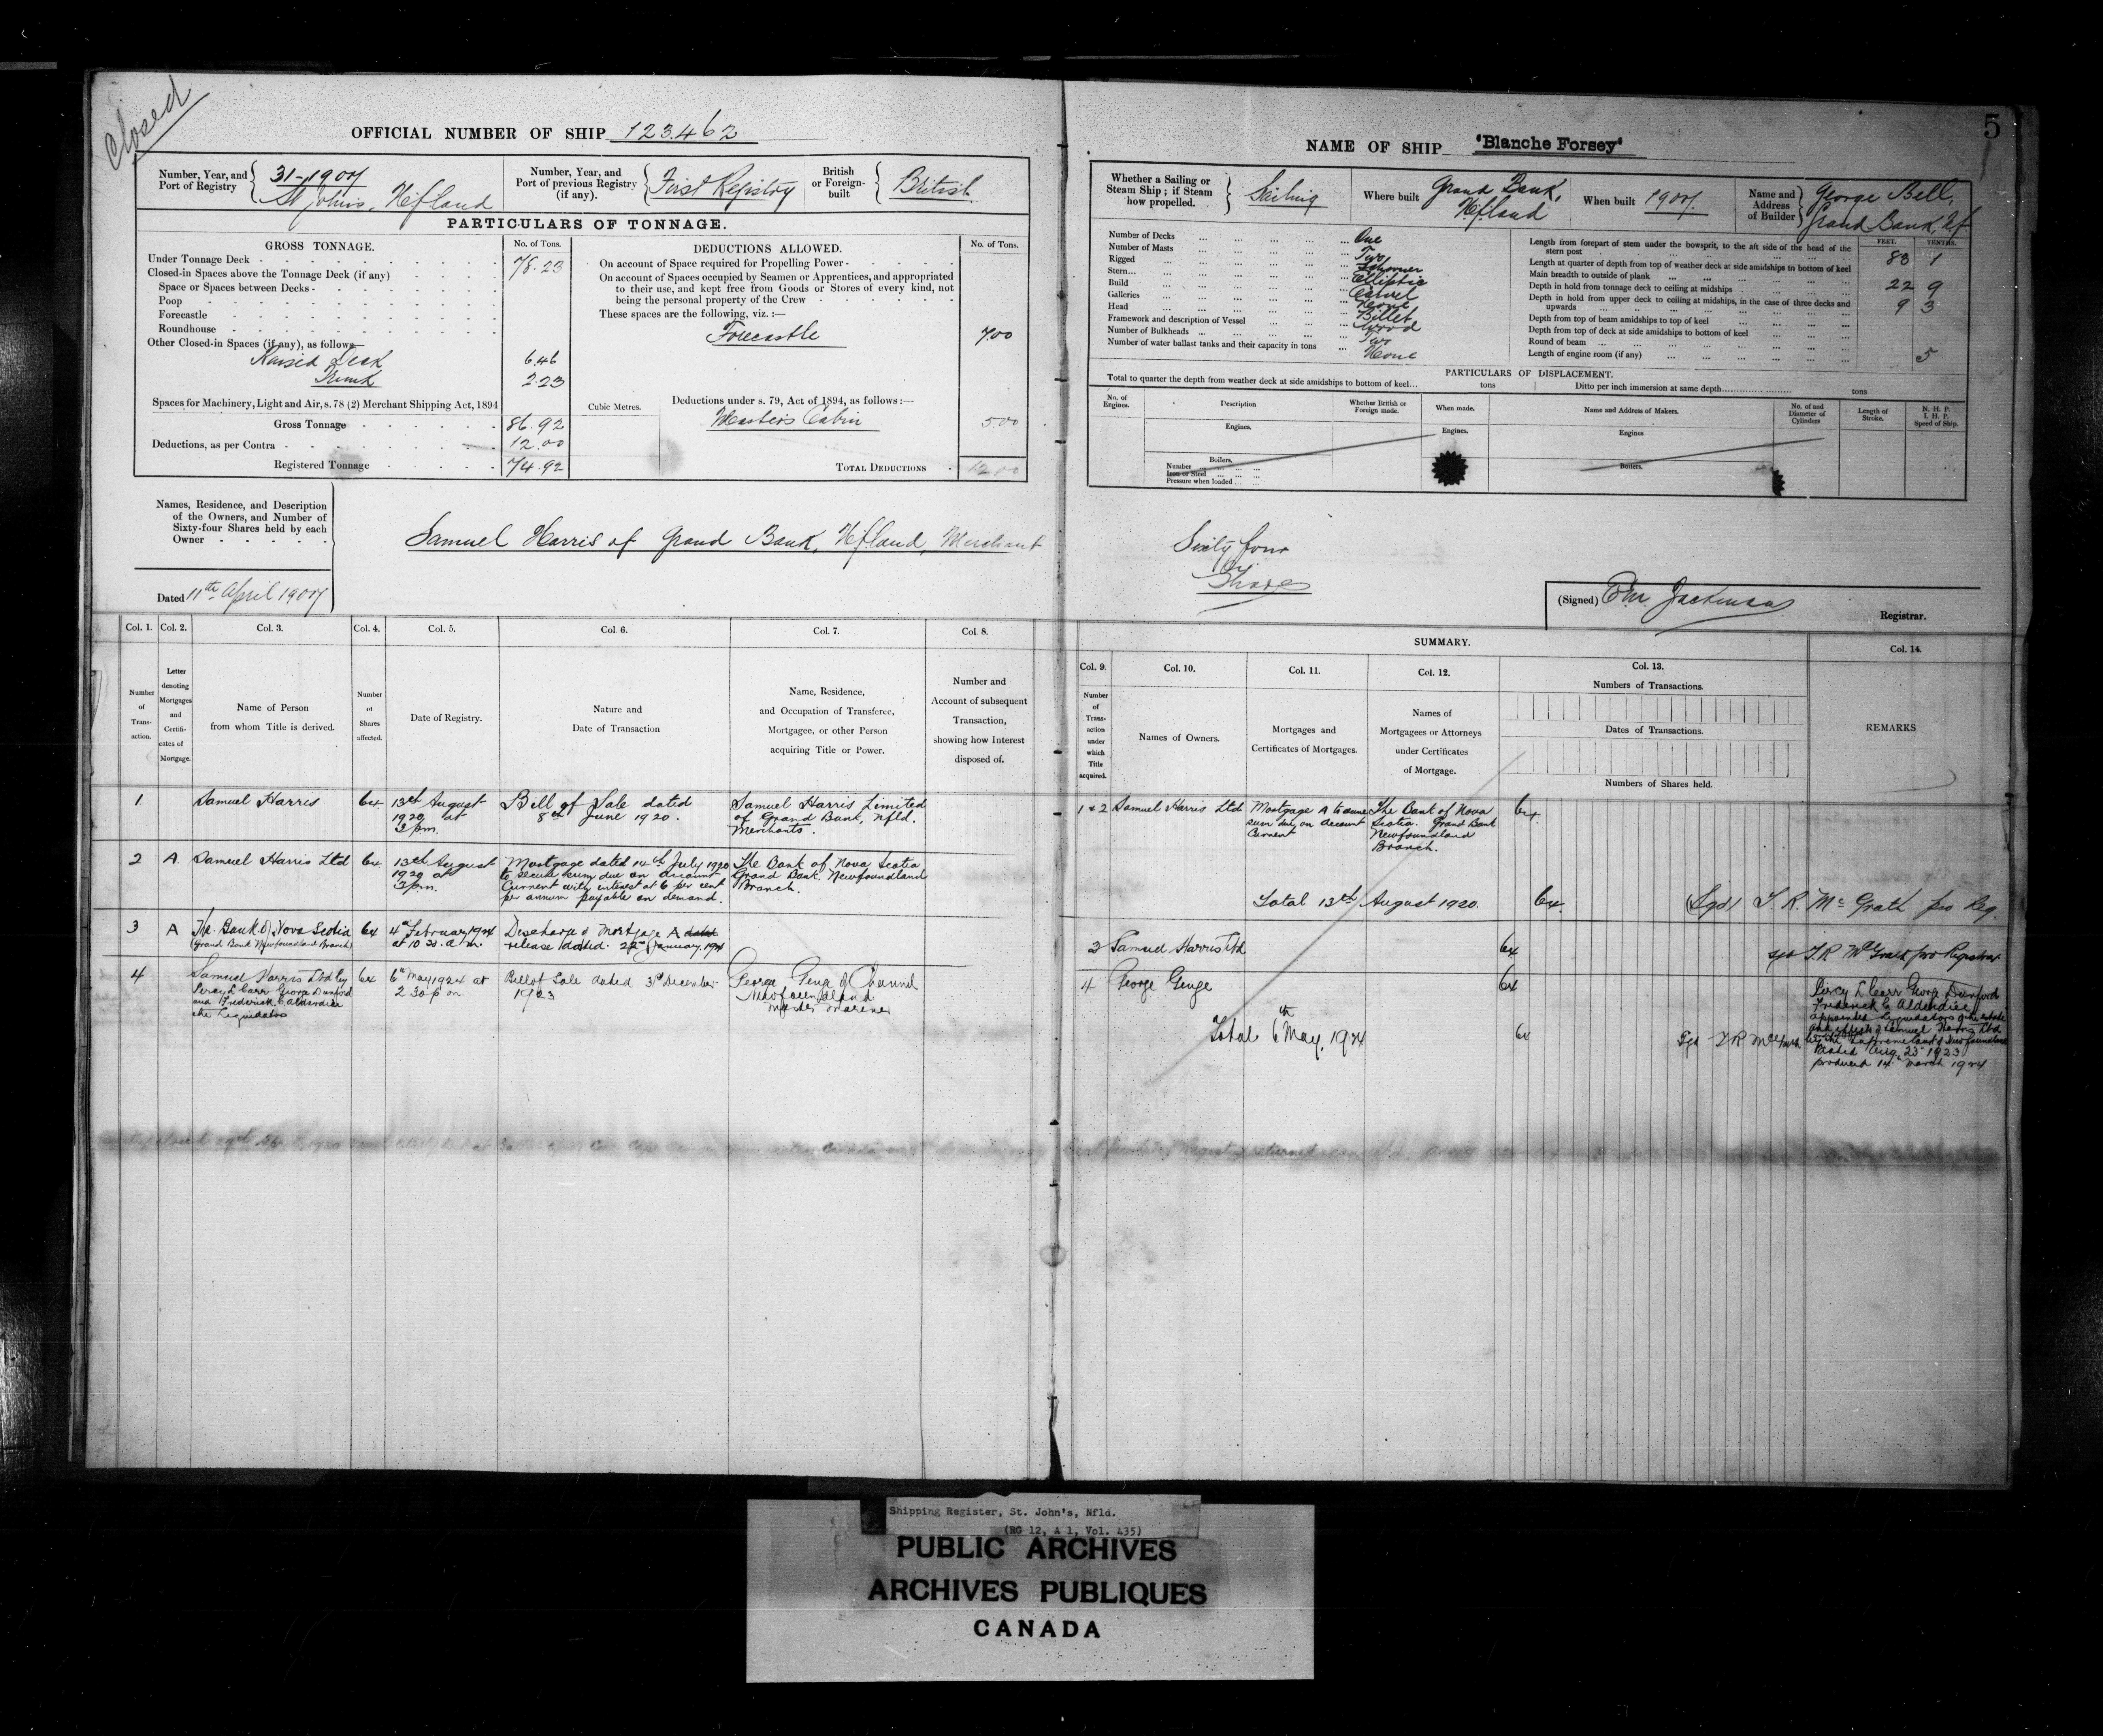 Closed
OFFICIAL NUMBER OF SHIP 123.462
Number, Year, and Port of Registry
31-1907
St John's, Nfland
Number, Year, and Port of previous Registry (if any).
First Registry
British or Foreign-built
British
PARTICULARS OF TONNAGE.
GROSS TONNAGE.
No. of Tons.
Under Tonnage Deck 78.23
Closed-in Spaces above the Tonnage Deck (if any)
Space or Spaces between Decks
Poop
Forecastle
Roundhouse
Other Closed-in Spaces (if any), as follows
Raised Deck 6.46
Trunk 2.23
Spaces for Machinery, Light and Air, s. 78 (2) Merchant Shipping Act, 1894
Gross Tonnage 86.92
Deductions, as per Contra 12.00
Registered Tonnage 74.92
DEDUCTIONS ALLOWED.
No. of Tons.
On account of Space required for Propelling Power
On account of Spaces occupied by Seamen or Apprentices, and appropriated
to their use, and kept free from Goods or Stores of every kind, not
being the personal property of the Crew
These spaces are the following, viz. :—
Forecastle 7.00
Cubic Metres.
Deductions under s. 79, Act of 1894, as follows :—
Master's Cabin 5.00
TOTAL DEDUCTIONS 12.00
Names, Residence, and Description
of the Owners, and Number of
Sixty-four Shares held by each
Owner
Samuel Harris of Grand Bank, Nfland, Merchant
Dated 11th April 1907
Col. 1. Col. 2. Col. 3. Col. 4. Col. 5. Col. 6. Col. 7. Col. 8.
Number of Trans-action.
Letter denoting Mortgages and Certifi-cates of Mortgage.
Name of Person
from whom Title is derived.
Number of Shares affected.
Date of Registry.
Nature and
Date of Transaction
Name, Residence,
and Occupation of Transferee,
Mortgagee, or other Person
acquiring Title or Power.
Number and
Account of subsequent
Transaction,
showing how Interest
disposed of.
1 Samuel Harris 64
13th August
1920 at
3 pm.
Bill of Sale dated
8th June 1920.
Samuel Harris Limited
of Grand Bank, Nfld.
Merchants.
2 A. Samuel Harris Ltd 64
13th August
1920 at
3 pm.
Mortgage dated 14th July 1920
to secure sum due on account
Current with interest at 6 per cent
per annum payable on demand.
The Bank of Nova Scotia
Grand Bank. Newfoundland
Branch.
3 A The Bank of Nova Scotia 64
(Grand Bank Newfoundland Branch)
4th February 1924
at 10 30. a.m.
Discharge of Mortgage A dated
release dated 22nd January 1924
4 Samuel Harris Ltd by 64
Percy L Carr George Dunford
and Frederick C Alderdice
the Liquidators
6th May 1924 at
2 30 p m
Bill of Sale dated 31st December
1923
George Genge of
Newfoundland
Master Mariner
5
NAME OF SHIP "Blanche Forsey"
Whether a Sailing or
Steam Ship ; if Steam
how propelled.
Sailing
Where built
Grand Bank,
Nfland
When built 1907.
Name and
Address
of Builder
George Bell,
Grand Bank, Nf.
Number of Decks One
Number of Masts Two
Rigged Schooner
Stern Elliptic
Build Carvel
Galleries None
Head Billet
Framework and description of Vessel Wood
Number of Bulkheads Two
Number of water ballast tanks and their capacity in tons None
FEET. TENTHS.
Length from forepart of stem under the bowsprit, to the aft side of the head of the
stern post 83 1
Length at quarter of depth from top of weather deck at side amidships to bottom of keel
Main breadth to outside of plank 22 9
Depth in hold from tonnage deck to ceiling at midships 9 3
Depth in hold from upper deck to ceiling at midships, in the case of three decks and
upwards
Depth from top of beam amidships to top of keel
Depth from top of deck at side amidships to bottom of keel
Round of beam 5
Length of engine room (if any)
PARTICULARS OF DISPLACEMENT.
Total to quarter the depth from weather deck at side amidships to bottom of keel... tons
Ditto per inch immersion at same depth... tons
No. of Engines.
Description
Whether British or Foreign made.
When made.
Name and Address of Makers.
No. of and Diameter of Cylinders
Length of Stroke.
N. H. P.
I. H. P.
Speed of Ship.
Engines.
Engines.
Engines
Boilers.
Number
Iron or Steel
Pressure when loaded
Boilers.
Sixty four
Shares
(Signed) Jackman
Registrar.
SUMMARY.
Col. 9. Col. 10. Col. 11. Col. 12. Col. 13. Col. 14.
Number of Trans-action under which Title acquired.
Names of Owners.
Mortgages and
Certificates of Mortgages.
Names of
Mortgagees or Attorneys
under Certificates
of Mortgage.
Numbers of Transactions.
Dates of Transactions.
Numbers of Shares held.
REMARKS
1 & 2 Samuel Harris Ltd
Mortgage A to secure
sum due on account
Current
The Bank of Nova
Scotia. Grand Bank
Newfoundland
Branch.
64
Total 13th August 1920. 64. (Sgd) T. R. McGrath pro Reg.
3 Samuel Harris Ltd 64 sgd T. R McGrath pro Registrar
4 George Genge 64
Total 6th May. 1924 64 Sgd T R McGrath
Percy L Carr George Dunford
Frederick C Alderdice
appointed Liquidators of the estate
and effects of Samuel Harris Ltd
by the Supreme Court of Newfoundland
dated Aug 23 1923
produced 14th March 1924
Shipping Register, St. John's, Nfld.
(RG 12, A 1, Vol. 435)
PUBLIC ARCHIVES
ARCHIVES PUBLIQUES
CANADA